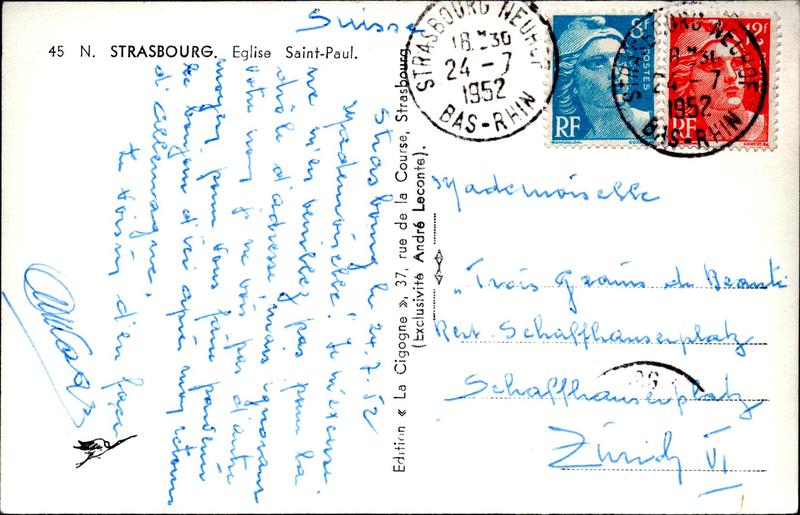 Suisse
45 N. STRASBOURG. Eglise Saint-Paul.
STRASBOURG NEUHOF
18 H 30
24 - 7
1952
BAS-RHIN
8F
POSTES
RF
STRASBOURG NEUHOF
18 H 30
24 - 7
1952
BAS-RHIN
12F
RF
Strasbourg le 24.7.52
Mademoiselle! Je m'excuse.
ne m'en veuillez pas pour la
drôle d'adresse mais ignorant
votre nom je ne vois pas d'autre
moyen pour vous faire parvenir
le bonjour d'ici après mon retour
d'Allemagne.
le voisin d'en face
Edition « La Cigogne », 37, rue de la Course, Strasbourg.
(Exclusivité André Leconte).
Mademoiselle
„Trois Grains de Beauté
Rest Schaffhauserplatz
Schaffhauserplatz
Zürich VI